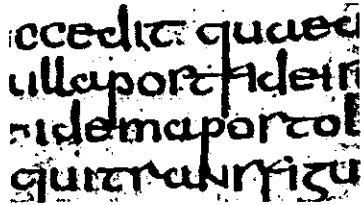 ccedit quaed
ullaportadein
idemaportol
quitransfigu